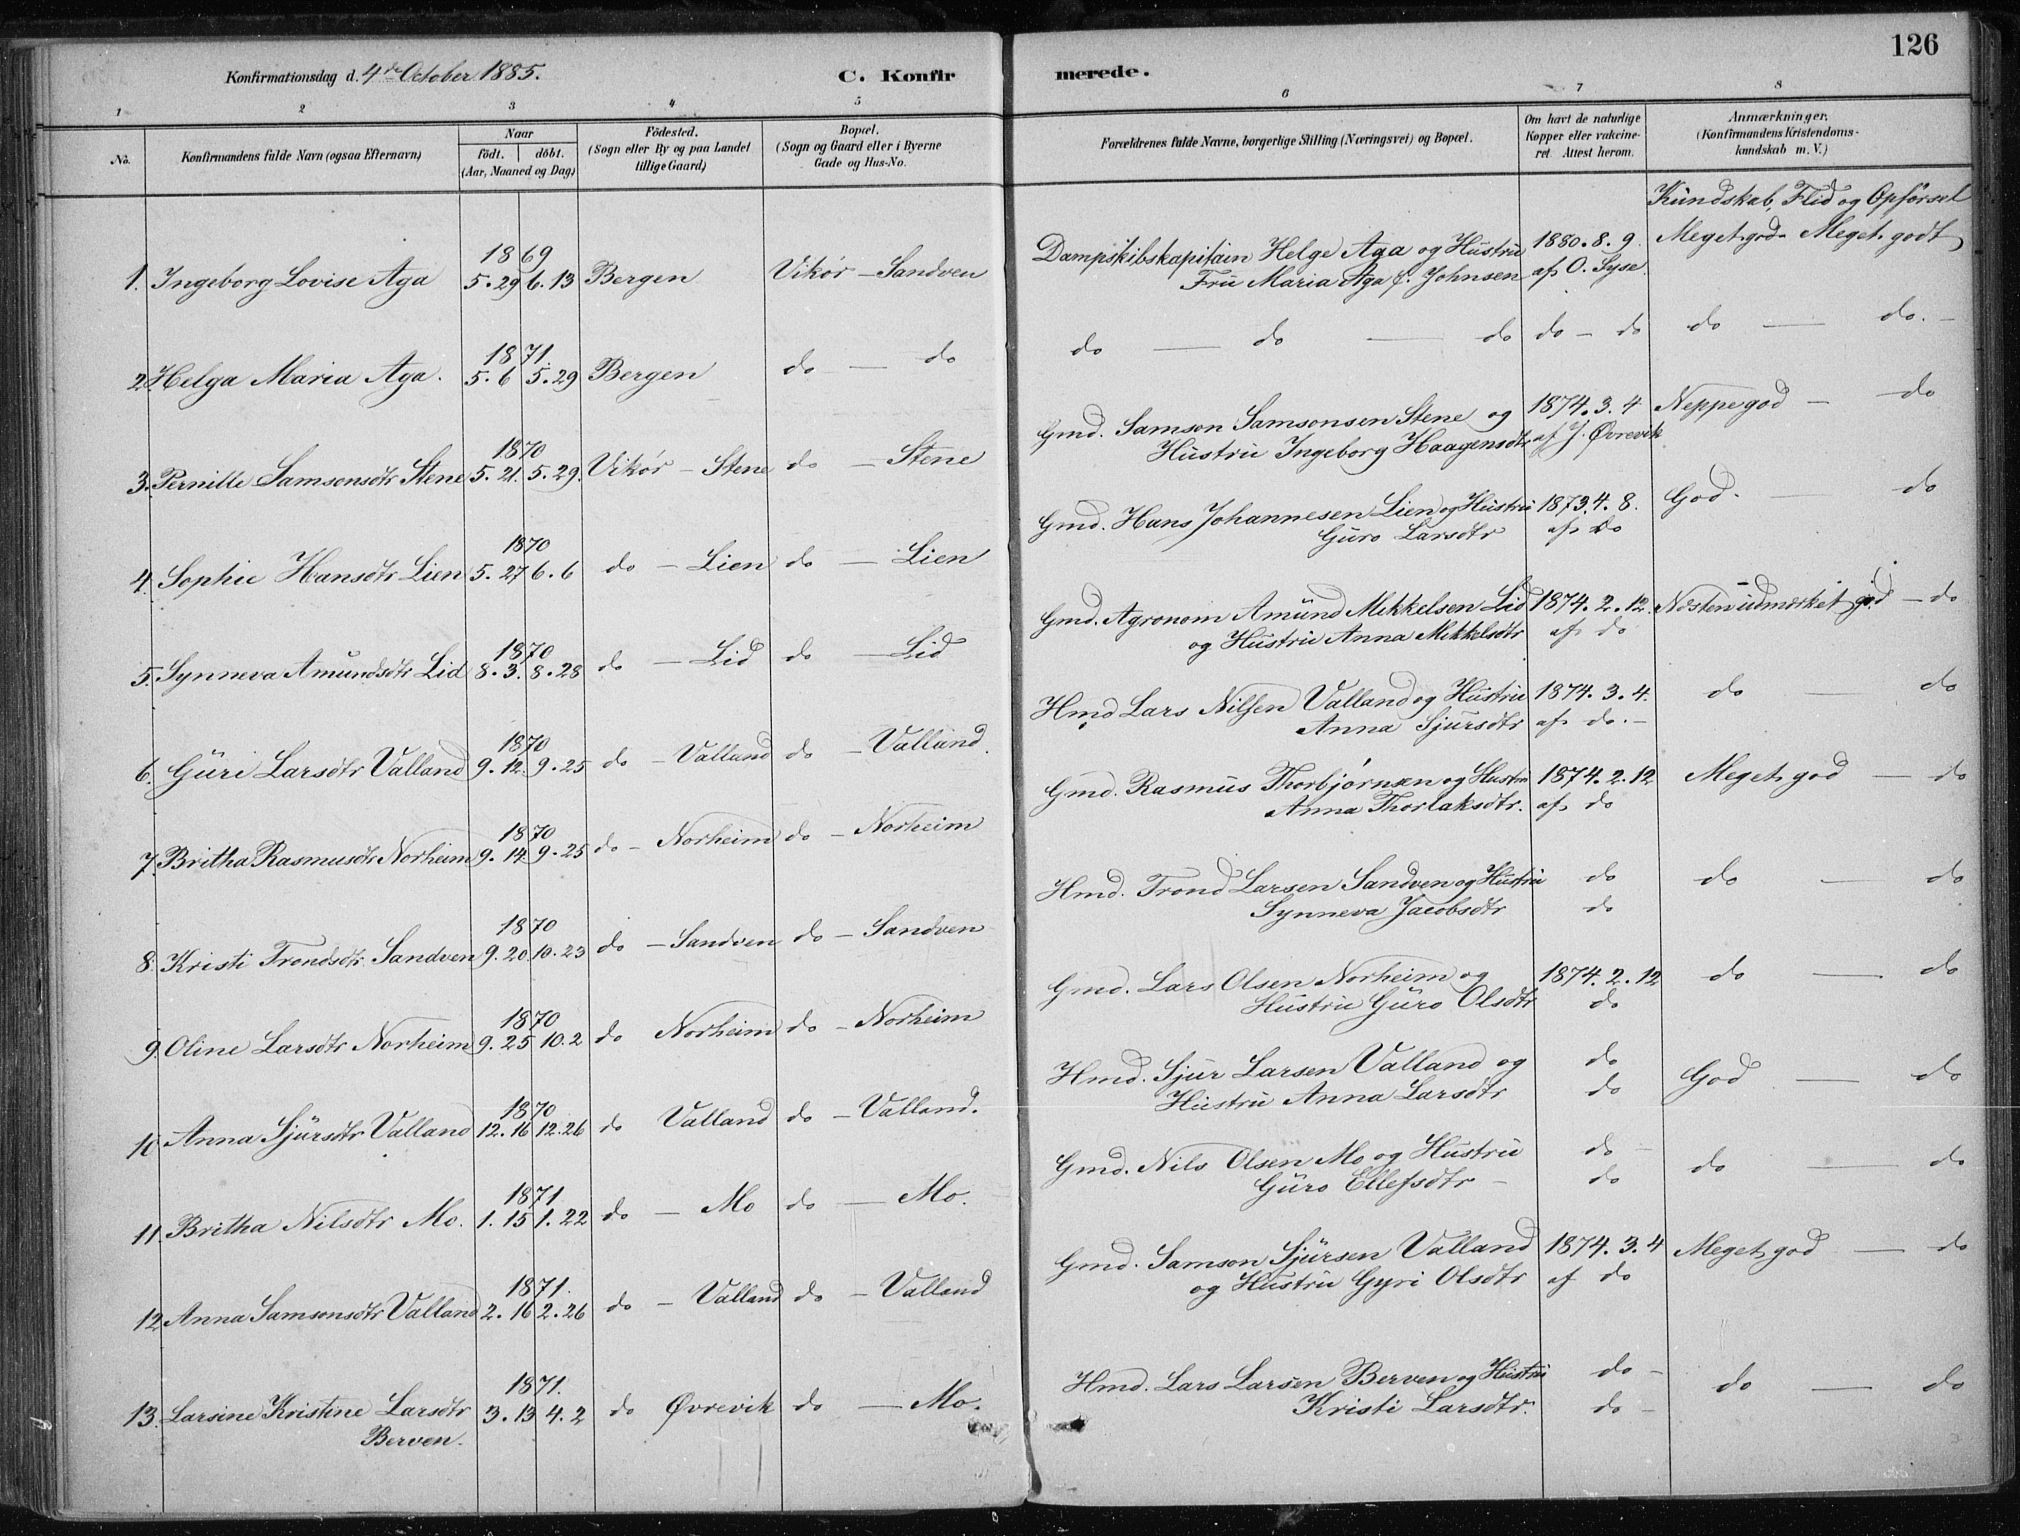 126
Konfirmationsdag d. 4de October 1885.
C. Konfirmerede.
1 2 3 4 5 6 7 8
No.
Konfirmandens fulde Navn (ogsaa Efternavn)
Naar
født. døbt.
(Aar, Maaned og Dag)
Fødested.
(Sogn eller By og paa Landet
tillige Gaard)
Bopæl.
(Sogn og Gaard eller i Byerne
Gade og Hus-No.
Forældrenes fulde Navne, borgerlige Stilling (Næringsvei) og Bopæl.
Om havt de naturlige
Kopper eller vakcine-
ret. Attest herom.
Anmærkninger,
(Konfirmandens Kristendoms-
kundskab m. V.)
Kundskab, Flid og Opførsel
1869
1. Ingeborg Lovise Aga 5.29 6.13 Bergen Vikør - Sandven
Dampskibskapitain Helge Aga og Hustru 1880.8.9. Meget god - Meget godt
Fru Maria Aga f. Johnsen af O. Syse
1871.
2. Helga Maria Aga. 5.6 5.29 Bergen do - do
do - do - do do - do do - do. -
1870
3. Pernille Samsonsdtr Stene 5.21. 5.29. Vikør - Stene do - Stene
Gmd. Samson Samsonsen Stene og 1874.3.4 Neppe god - do
Hustru Ingeborg Haagensdtr af J. Øvrevik
1870
4. Sophie Hansdtr Lien 5.27 6.6 do - Lien do - Lien
Gmd. Hans Johannesen Lien og Hustru 1873.4.8. God. - do
Guro Larsdtr af do
1870
5. Synneva Amundsdtr Lid 8.3. 8.28 do - Lid do - Lid
Gmd. Agronom Amund Mikkelsen Lid 1874.2.12. Næsten udmærket god - do
og Hustru Anna Mikkelsdtr af do
1870
6. Guri Larsdtr Valland 9.12. 9.25 do - Valland do - Valland.
Hmd Lars Nilsen Valland og Hustru 1874.3.4. do - do
Anna Sjursdtr af do. -
1870
7. Britha Rasmusdtr Norheim 9.14. 9.25 do - Norheim do - Norheim
Gmd. Rasmus Thorbjørnsen og Hustru 1874.2.12 Meget god - do
Anna Thorlaksdtr. af do
1870
8. Kristi Trondsdtr Sandven 9.20. 10.23 do - Sandven do - Sandven
Hmd. Trond Larsen Sandven og Hustru do do - do
Synneva Jacobsdtr do
1870
9. Oline Larsdtr Norheim 9.25 10.2 do Norheim do - Norheim
Gmd. Lars Olsen Norheim og 1874.2.12 do - do
Hustru Guro Olsdtr do
1870
10. Anna Sjursdtr Valland 12.16 12.26 do Valland do - Valland.
Hmd. Sjur Larsen Valland og do God - do
Hustru Anna Larsdtr do
1871.
11. Britha Nilsdtr Mo. 1.15 1.22 do - Mo do - Mo.
Gmd. Nils Olsen Mo og Hustru do - do - do
Guro Ellefsdtr - do
1871.
12. Anna Samsonsdtr Valland 2.16 2.26 do - Valland do - Valland
Gmd. Samson Sjursen Valland 1874.3.4 Meget god - do
og Hustru Gyri Olsdtr af do
1871.
13. Larsine Kristine Larsdtr 3.13 4.2 do Øvrevik do - Mo.
Berven.
Hmd. Lars Larsen Berven og Hustru do - do - do
Kristi Larsdtr. do -